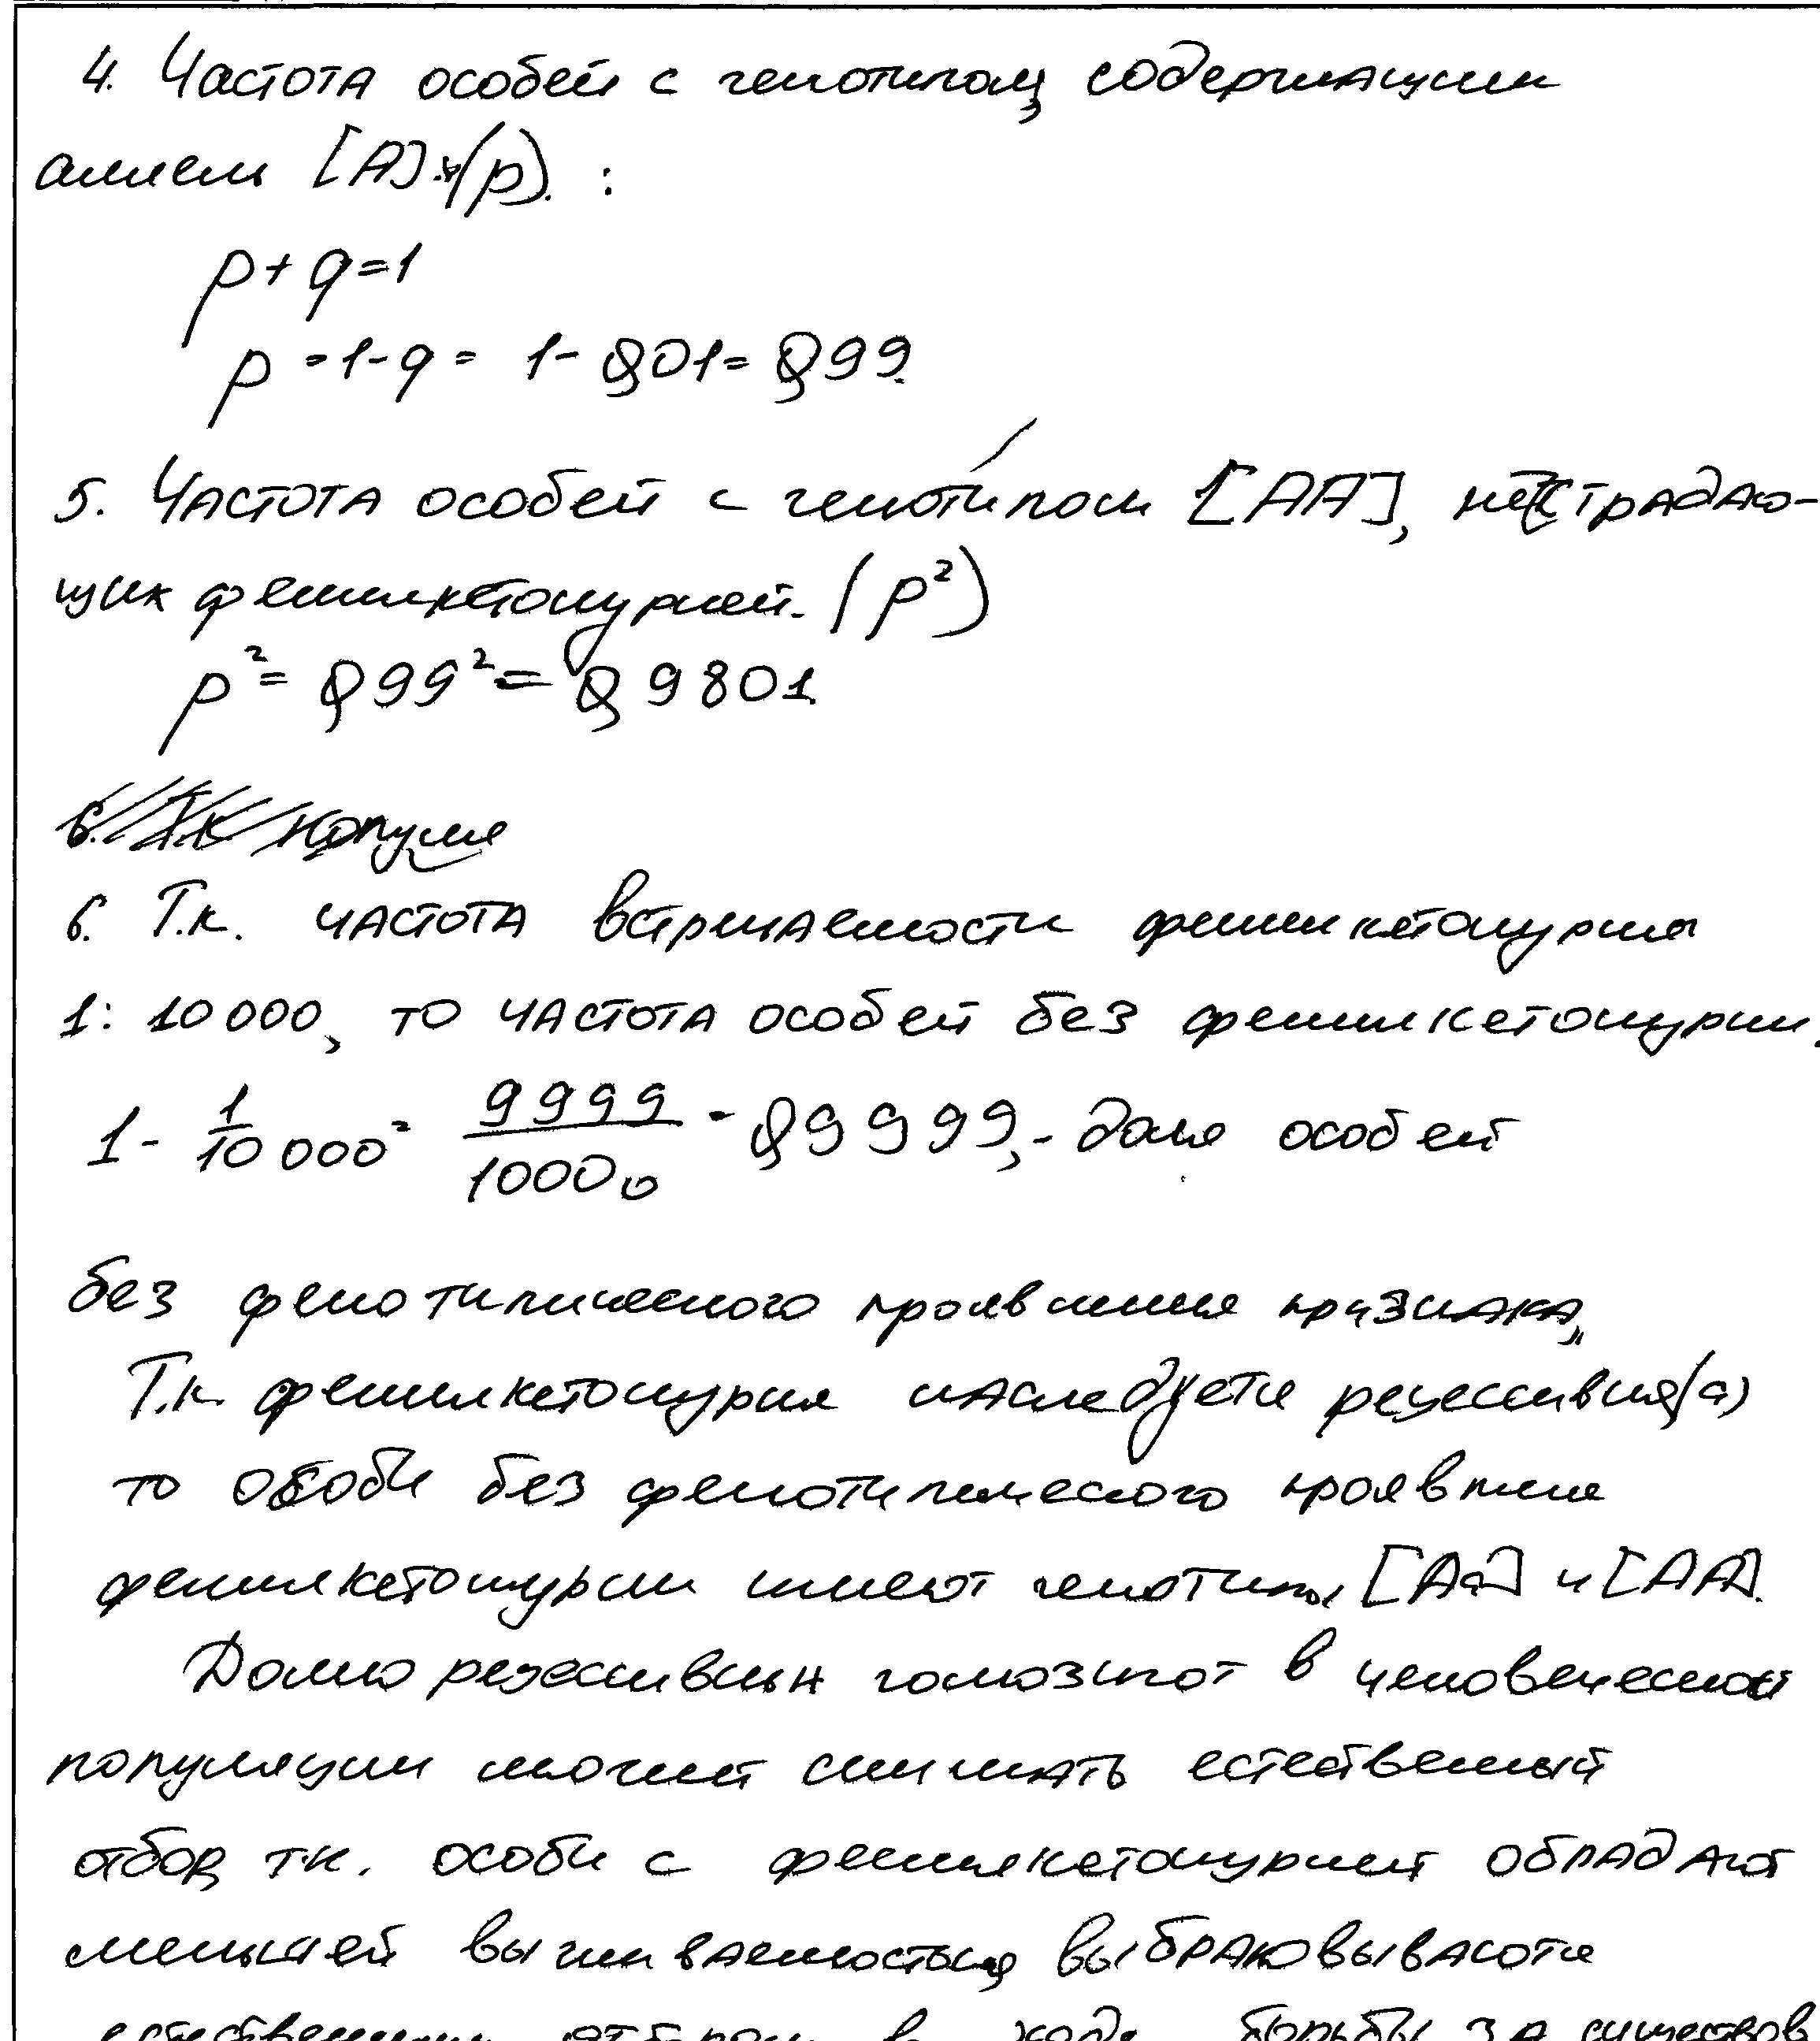 4. Частота особей с генотипом, содержащим
аллель [A] (p). :
p + q = 1
p = 1 - q = 1 - 0,01 = 0,99.
5. Частота особей с генотипом [AA], не страдаю-
щих фенилкетонурией. (p²)
p² = 0,99² = 0,9801.
6. Т.к популя
6. Т.к. частота встречаемости фенилкетонурии
1: 10 000, то частота особей без фенилкетонурии,
1 - 1/10 000 = 9999/10000 = 0,9999, - доля особей
без фенотипического проявления признака,
Т.к. фенилкетонурия наследуется рецессивно (a)
то особи без фенотипического проявления
фенилкетонурии имеют генотипы [Aa] и [AA].
Долю рецессивных гомозигот в человеческой
популяции может снижать естественный
отбор, т.к. особи с фенилкетонурией обладают
меньшей выживаемостью, выбраковываются
естественным отбором в ходе борьбы за существов